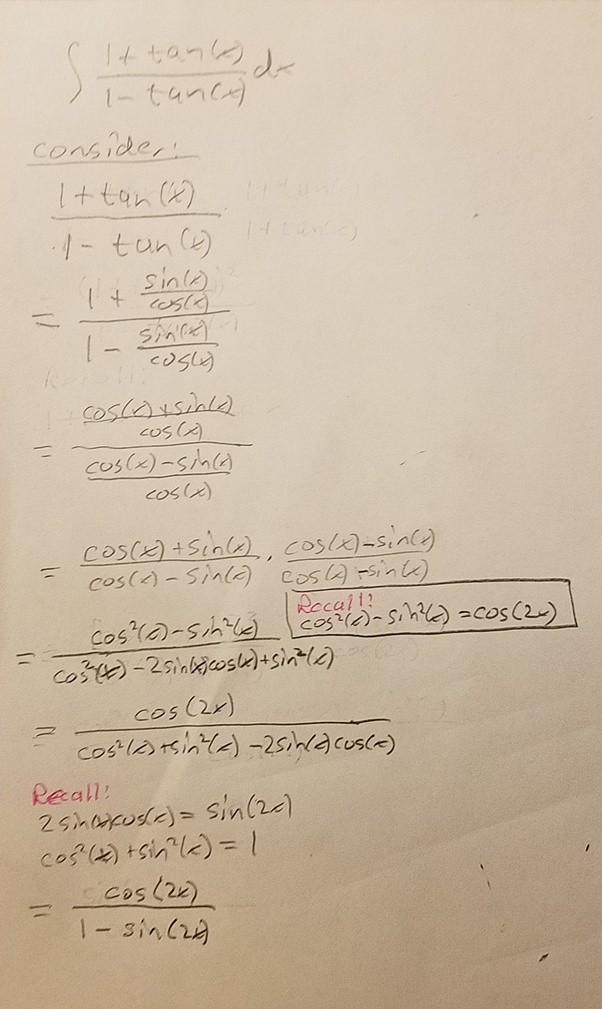 ∫ (1 + tan(x))/(1 - tan(x)) dx
consider:
(1 + tan(x))/(1 - tan(x))
= (1 + sin(x)/cos(x))/(1 - sin(x)/cos(x))
= ((cos(x) + sin(x))/cos(x))/((cos(x) - sin(x))/cos(x))
= (cos(x) + sin(x))/(cos(x) - sin(x)) · (cos(x) - sin(x))/(cos(x) - sin(x))
Recall!
cos²(x) - sin²(x) = cos(2x)
= (cos²(x) - sin²(x))/(cos²(x) - 2sin(x)cos(x) + sin²(x))
= cos(2x)/(cos²(x) + sin²(x) - 2sin(x)cos(x))
Recall!
2sin(x)cos(x) = sin(2x)
cos²(x) + sin²(x) = 1
= cos(2x)/(1 - sin(2x))